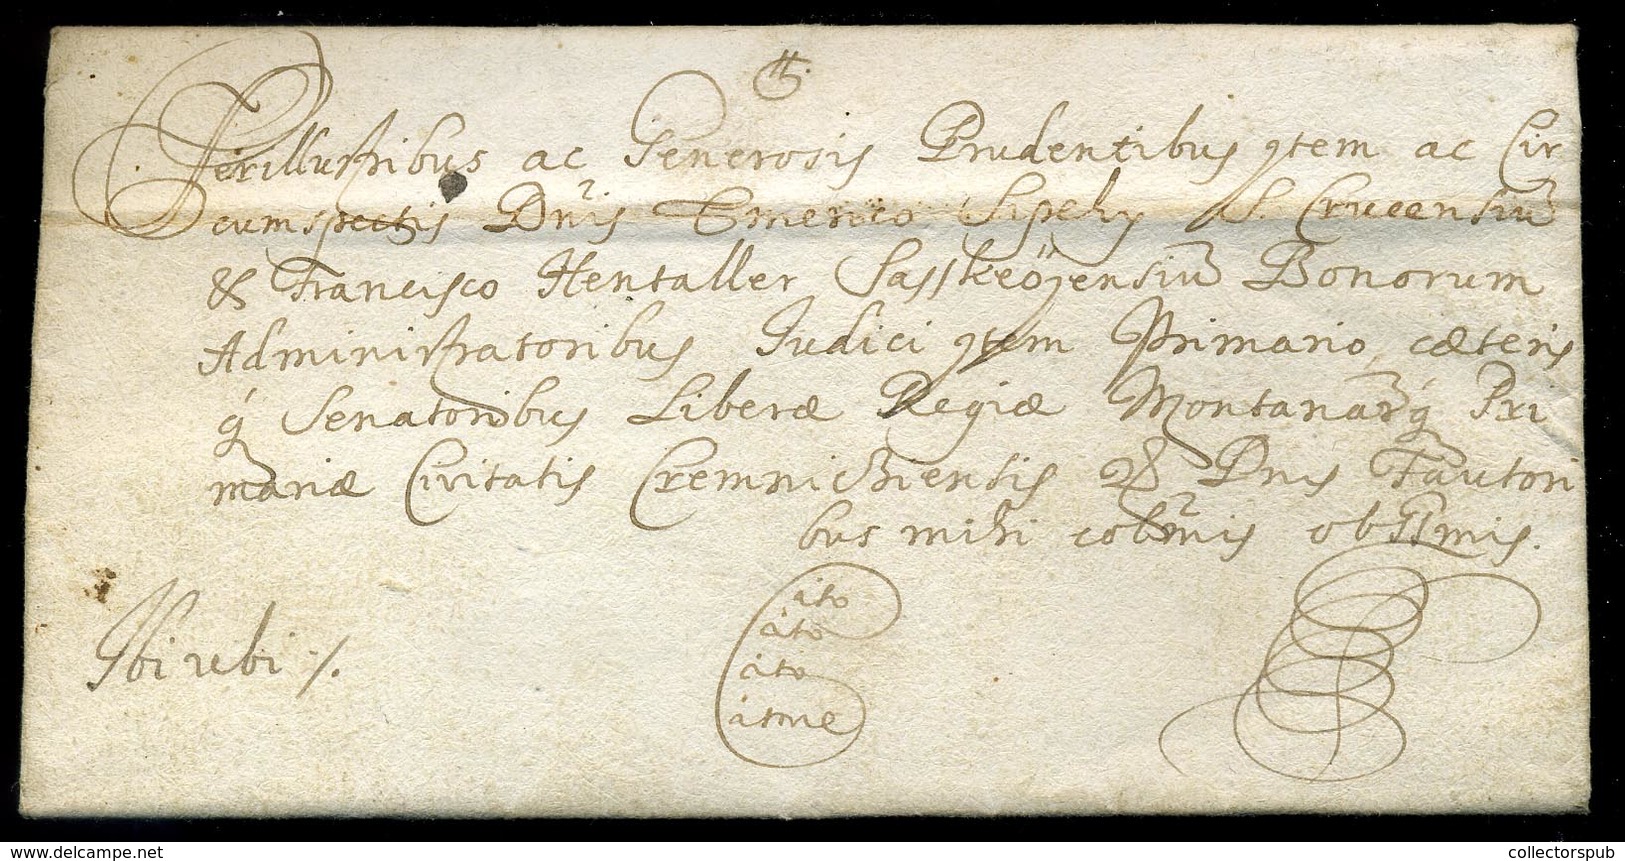 Perillustribus ac Generosis Prudentibus item ac Cir
cumspectis Dnis Emerico Sipeky S. Crucensiũ
& Francisco Hentaller Sasskeöjensiũ Bonorum
Administratoribus Iudici item Primario, cæteris
q́ Senatoribus Liberæ Regiæ Montanar̃q́ Pri
mariæ Civitatis Cremnicziensis & Dnis Fautori
bus mihi colmis obssmis.
Ibi ubi ./.
cito
cito
cito
citme
collectorspub.com